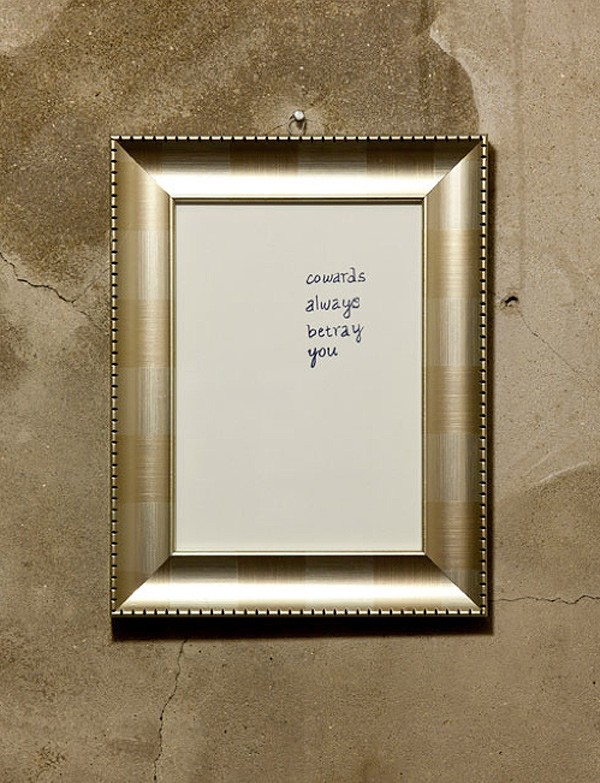 cowards
always
betray
you